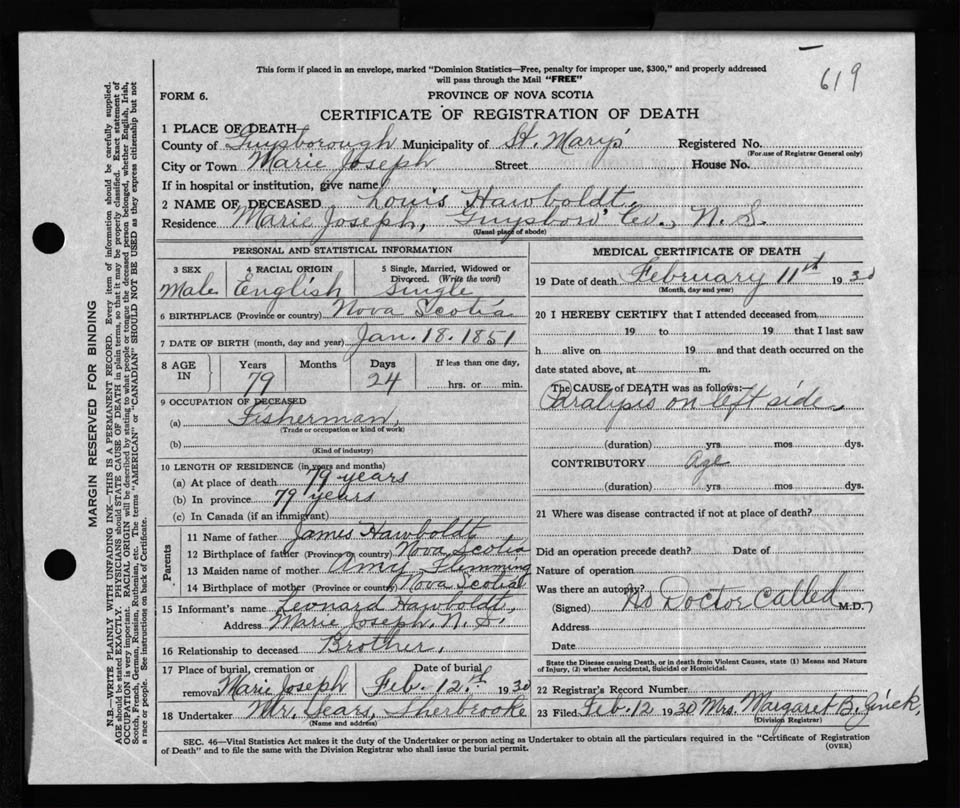 619
This form if placed in an envelope, marked "Dominion Statistics—Free, penalty for improper use, $300," and properly addressed
will pass through the Mail "FREE"
FORM 6.
PROVINCE OF NOVA SCOTIA
CERTIFICATE OF REGISTRATION OF DEATH
1 PLACE OF DEATH
County of Guysborough Municipality of St. Mary's Registered No.
(For use of Registrar General only)
City or Town Marie Joseph Street House No.
If in hospital or institution, give name
2 NAME OF DECEASED Louis Hawboldt.
Residence Marie Joseph, Guysboro' Co., N. S.
(Usual place of abode)
PERSONAL AND STATISTICAL INFORMATION
3 SEX 4 RACIAL ORIGIN 5 Single, Married, Widowed or
Divorced. (Write the word)
Male English Single
6 BIRTHPLACE (Province or country) Nova Scotia
7 DATE OF BIRTH (month, day and year) Jan. 18. 1851
8 AGE IN Years Months Days If less than one day,
79 24 hrs. or min.
9 OCCUPATION OF DECEASED
(a) Fisherman,
(Trade or occupation or kind of work)
(b)
(Kind of industry)
10 LENGTH OF RESIDENCE (in years and months)
(a) At place of death 79 years
(b) In province 79 years
(c) In Canada (if an immigrant)
Parents
11 Name of father James Hawboldt
12 Birthplace of father (Province or country) Nova Scotia
13 Maiden name of mother Amy Flemming
14 Birthplace of mother (Province or country) Nova Scotia
15 Informant's name Leonard Hawboldt,
Address Marie Joseph, N. S.
16 Relationship to deceased Brother,
17 Place of burial, cremation or Date of burial
removal Marie Joseph Feb. 12.th 1930
18 Undertaker Mr. Sears, Sherbrooke
(Name and address)
MEDICAL CERTIFICATE OF DEATH
19 Date of death February 11th 1930
(Month, day and year)
20 I HEREBY CERTIFY that I attended deceased from
19 to 19 that I last saw
h alive on 19 and that death occurred on the
date stated above, at m.
The CAUSE of DEATH was as follows:
Paralysis on left side,
(duration) yrs mos dys.
CONTRIBUTORY Age
(duration) yrs. mos. dys.
21 Where was disease contracted if not at place of death?
Did an operation precede death? Date of
Nature of operation
Was there an autopsy?
(Signed) No Doctor Called M.D.
Address
Date
State the Disease causing Death, or in death from Violent Causes, state (1) Means and Nature
of Injury, (2) whether Accidental, Suicidal or Homicidal.
22 Registrar's Record Number
23 Filed Feb. 12 1930 Mrs. Margaret B.
(Division Registrar)
SEC. 46—Vital Statistics Act makes it the duty of the Undertaker or person acting as Undertaker to obtain all the particulars required in the "Certificate of Registration
of Death" and to file the same with the Division Registrar who shall issue the burial permit.
(OVER)
MARGIN RESERVED FOR BINDING
N.B.—WRITE PLAINLY WITH UNFADING INK—THIS IS A PERMANENT RECORD. Every item of information should be carefully supplied.
AGE should be stated EXACTLY. PHYSICIANS should STATE CAUSE OF DEATH in plain terms, so that it may be properly classified. Exact statement of
OCCUPATION is very important. RACIAL ORIGIN will be described by stating to what people or tongue the deceased person belonged, whether English, Irish,
Scotch, French, German, Russian, Ruthenian, etc. The terms "AMERICAN" or "CANADIAN" SHOULD NOT BE USED as they express citizenship but not
a race or people. See instructions on back of Certificate.